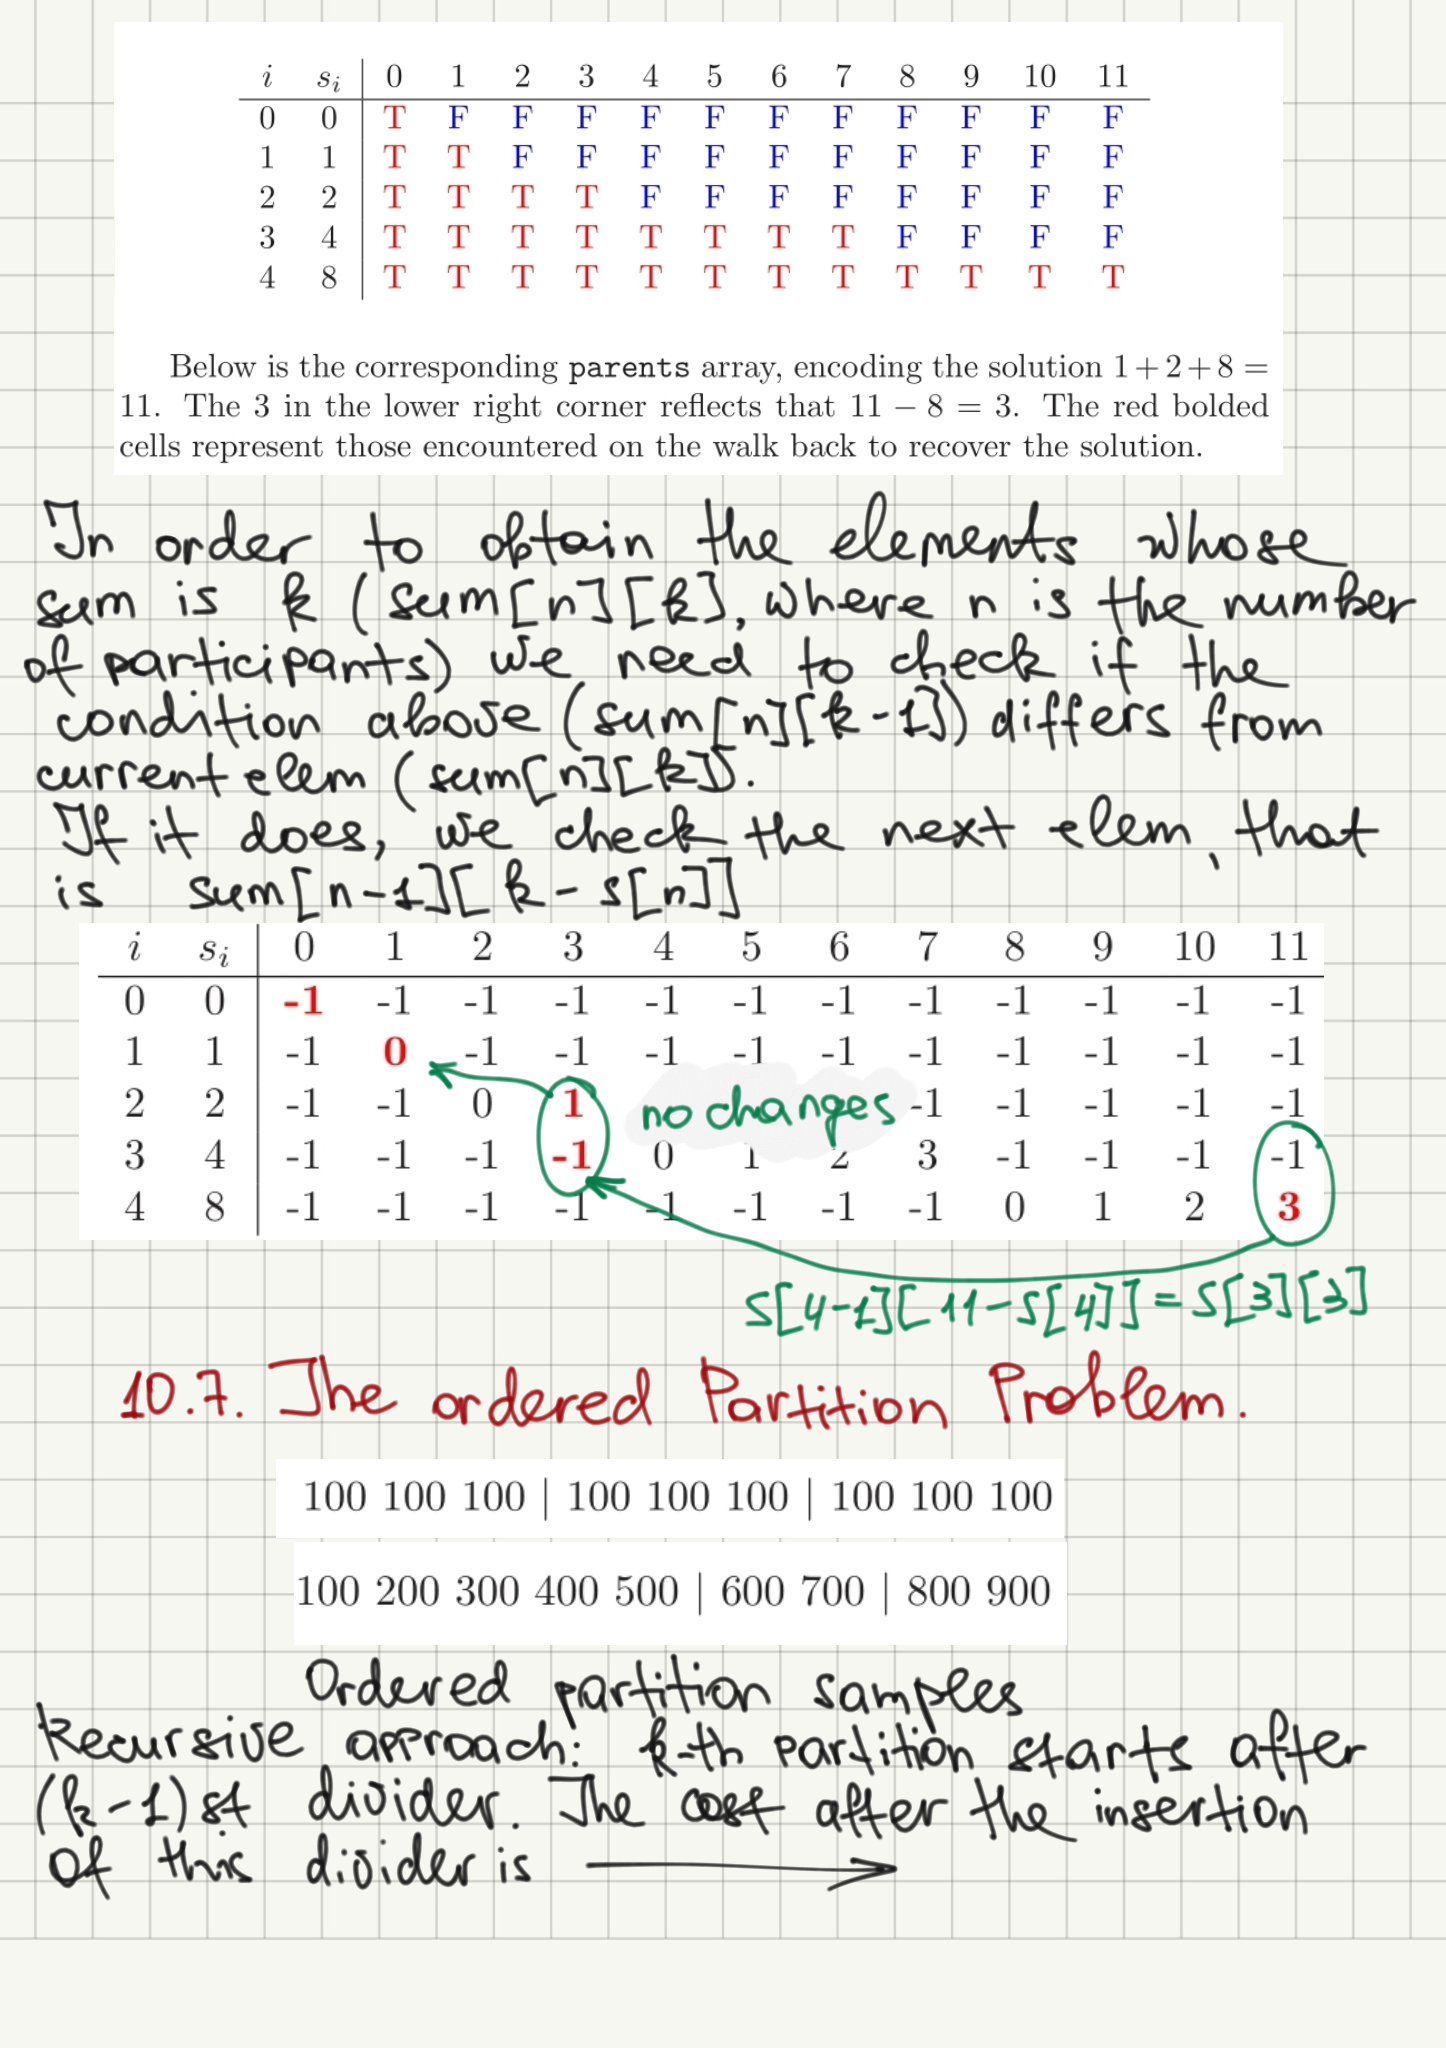 i si 0 1 2 3 4 5 6 7 8 9 10 11
0 0 T F F F F F F F F F F F
1 1 T T F F F F F F F F F F
2 2 T T T T F F F F F F F F
3 4 T T T T T T T T F F F F
4 8 T T T T T T T T T T T T
Below is the corresponding parents array, encoding the solution 1 + 2 + 8 =
11. The 3 in the lower right corner reflects that 11 − 8 = 3. The red bolded
cells represent those encountered on the walk back to recover the solution.
In order to obtain the elements whose
sum is k (sum[n][k], where n is the number
of participants) we need to check if the
condition above (sum[n][k-1]) differs from
current elem (sum[n][k]).
If it does, we check the next elem, that
is sum[n-1][k-s[n]]
i si 0 1 2 3 4 5 6 7 8 9 10 11
0 0 -1 -1 -1 -1 -1 -1 -1 -1 -1 -1 -1 -1
1 1 -1 0 -1 -1 -1 -1 -1 -1 -1 -1 -1 -1
2 2 -1 -1 0 1 no changes -1 -1 -1 -1 -1
3 4 -1 -1 -1 -1 0 1 2 3 -1 -1 -1 -1
4 8 -1 -1 -1 -1 -1 -1 -1 -1 0 1 2 3
S[4-1][11-S[4]] = S[3][3]
10.7. The ordered Partition Problem.
100 100 100 | 100 100 100 | 100 100 100
100 200 300 400 500 | 600 700 | 800 900
Ordered partition samples
Recursive approach: k-th partition starts after
(k-1)st divider. The cost after the insertion
of this divider is